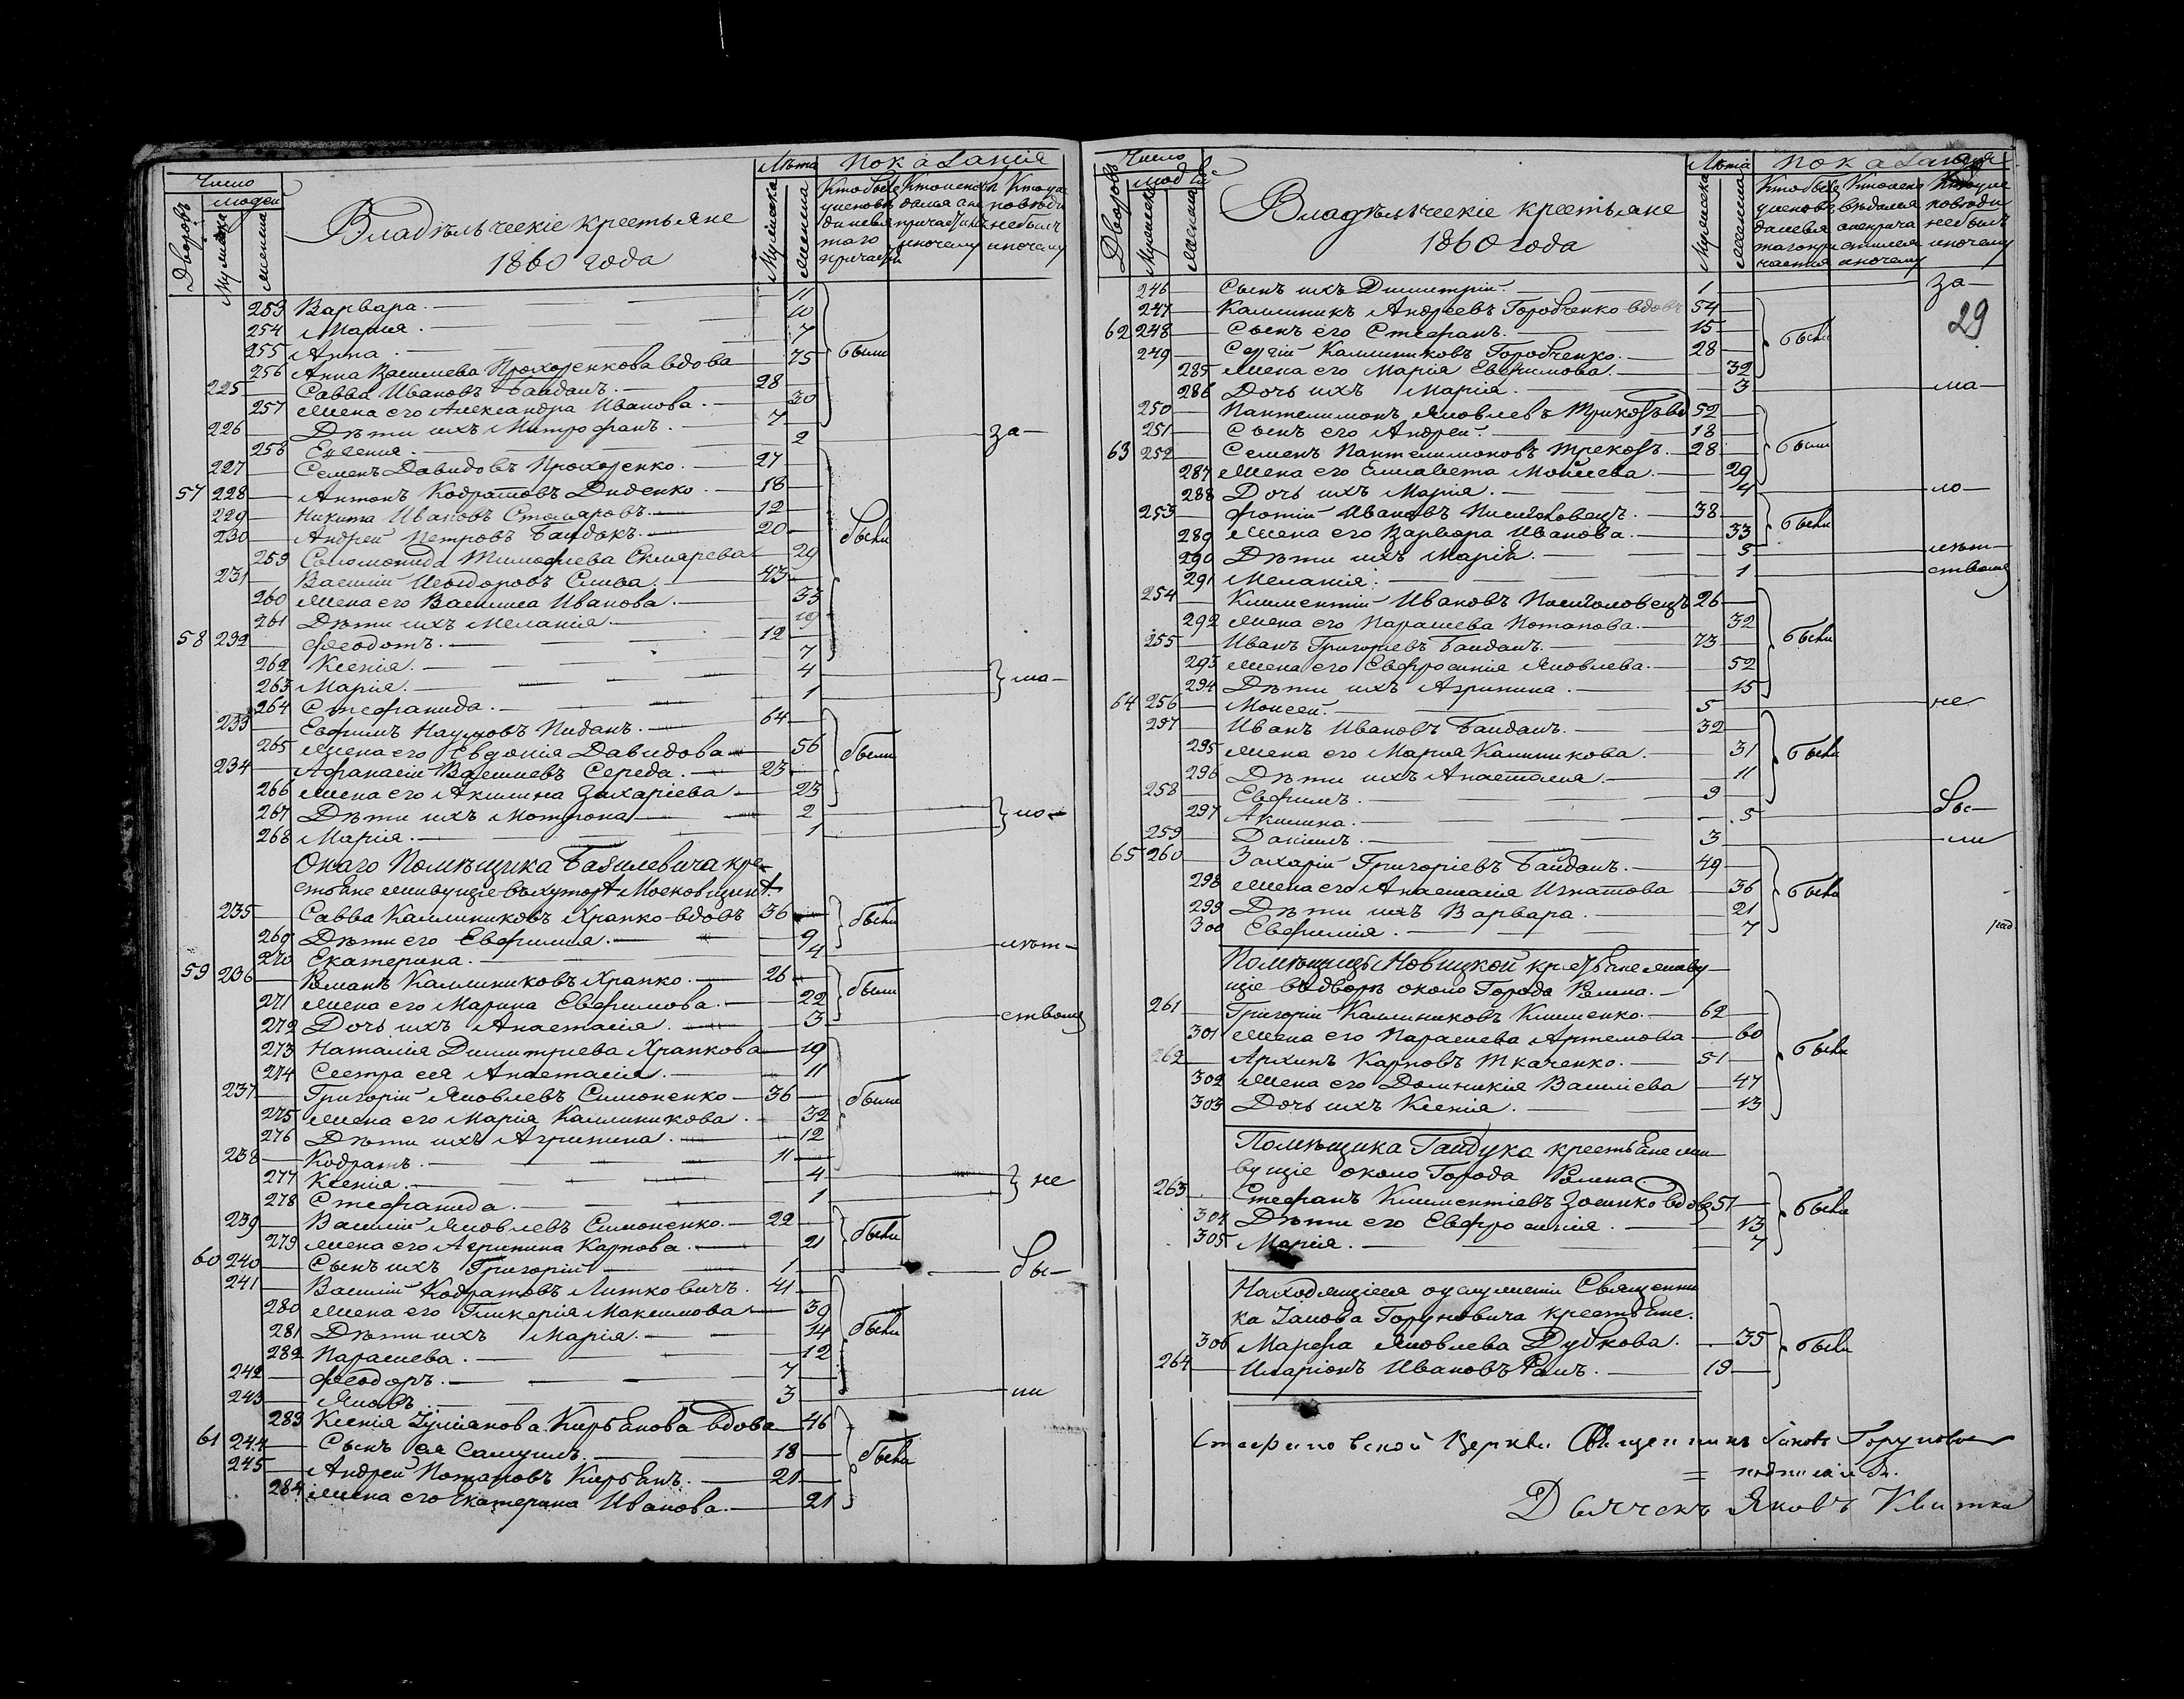 Число
людей
Дворовъ
Мужеска
женска
Владѣльческіе крестьяне
1860 года
Лѣта
Мужеска
женска
Показанія
253 Варвара. 11
254 Марія. 10
255 Анна. 7
256 Анна Василиева Прохоренкова вдова 75
были
225 Савва Ивановъ Байданъ. 28
257 Жена его Александра Иванова. 30
226 Дѣти ихъ Митрофанъ. 7
258 Евгенія. 2 за-
227 Семенъ Давидовъ Прохоренко. 27
57 228 Антонъ Кодратовъ Диденко 18
229 Никита Ивановъ Столяровъ. 12
230 Андрей Петровъ Байдакъ. 20 были
259 Соломонида Тимофиева Склярева 29
231 Василій Исидоровъ Слива. 43
260 Жена его Василиса Иванова. 33
261 Дѣти ихъ Меланія. 19
58 232 Феодотъ. 12
262 Ксенія. 7
263 Марія. 4 ма-
264 Стефанида. 1
233 Евфимъ Наумовъ Пиданъ. 64
265 Жена его Евдокія Давидова 56 были
234 Афанасій Василиевъ Середа. 23
266 Жена его Акилина Захаріева 23
267 Дѣти ихъ Мотрона 2 ло-
268 Марія. 1
Онаго Помѣщика Базилевича кре-
стьяне живущіе въ хуторѣ Московщинѣ.
235 Савва Калиниковъ Храпко вдовъ 36 были
269 Дѣти его Евфимія. 9
270 Екатерина. 4 лѣт-
59 236 Романъ Калиниковъ Храпко. 26 были
271 Жена его Марина Евфимова. 22
272 Дочь ихъ Анастасія. 3 ствомъ
273 Наталія Димитріева Храпкова 19
274 Сестра ея Анастасія. 11
237 Григорій Яковлевъ Симоненко 36 были
275 Жена его Марія Калиникова. 32
276 Дѣти ихъ Агрипина. 12
238 Кодратъ. 11
277 Ксенія. 4 не
278 Стефанида. 1
239 Василій Яковлевъ Симоненко. 22 были
279 Жена его Агрипина Карпова. 21
60 240 Сынъ ихъ Григорій 1 бы-
241 Василій Кодратовъ Литковичъ. 41
280 Жена его Гликерія Максимова 39
281 Дѣти ихъ Марія. 14 были
282 Параскева. 12
242 Феодоръ. 7
243 Яковъ 3 ли
283 Ксенія Кирьянова вдова 46
61 244 Сынъ ея Самуилъ. 18 были
245 Андрей Потаповъ Кирьянъ. 21
284 Жена его Екатерина Иванова. 21
Число
людей
Дворовъ
Мужеска
женска
Владѣльческіе крестьяне
1860 года
Лѣта
Мужеска
женска
Показанія
29
246 Сынъ ихъ Димитрій. 1 за-
247 Калиникъ Андреевъ Горобченко вдовъ 54
62 248 Сынъ его Стефанъ. 15 были
249 Сергій Калиниковъ Горобченко. 28
285 Жена его Марія Евфимова. 32
286 Дочь ихъ Марія. 3 ма-
250 Пантелимонъ Яковлевъ 52
251 Сынъ его Андрей. 18
63 252 Семенъ Пантелимоновъ 28 были
287 Жена его Елисавета Моисеева. 29
288 Дочь ихъ Марія. 4 ло-
253 Фотій Ивановъ 38 были
289 Жена его Варвара Иванова. 33
290 Дѣти ихъ Марія. 5 лѣт-
291 Меланія. 1 ствомъ
254 Климентій Ивановъ 26
292 Жена его Парасева Потапова. 32
255 Иванъ Григоріевъ Байданъ. 73 были
293 Жена его Евфросинія Яковлева. 52
294 Дѣти ихъ Агрипина. 15
64 256 Моисей. 5 не
257 Иванъ Ивановъ Байданъ. 32
295 Жена его Марія Калиникова. 31 были
296 Дѣти ихъ Анастасія. 11
258 Евфимъ. 9
297 Акилина. 5 бы-
259 Даніилъ. 3 ли
65 260 Захарій Григоріевъ Байданъ. 49
298 Жена его Анастасія Игнатова 36 были
299 Дѣти ихъ Варвара. 21
300 Евфимія. 7
Помѣщицы Новицкой крестьяне живу-
щіе въ дворѣ около Города Ромна.
261 Григорій Калиниковъ Клименко. 62
301 Жена его Парасева Артемова 60
262 Архипъ Карповъ Ткаченко. 51 были
302 Жена его Домникія Василіева 47
303 Дочь ихъ Ксенія. 13
Помѣщика Гайдука крестьяне жи-
вущіе около Города Ромна.
263 Стефанъ Климентіевъ вдовъ 51 были
304 Дѣти его Евфросинія. 13
305 Марія. 7
Находящіеся въ услуженіи Священни
ка Іакова Горуновича крестьяне.
306 Марфа Яковлева Дубкова. 35 были
264 Иларіонъ Ивановъ 19
Стефановской Церкви Священникъ Іаковъ Горуновичъ
подписался.
Дьячекъ Яковъ Квитка